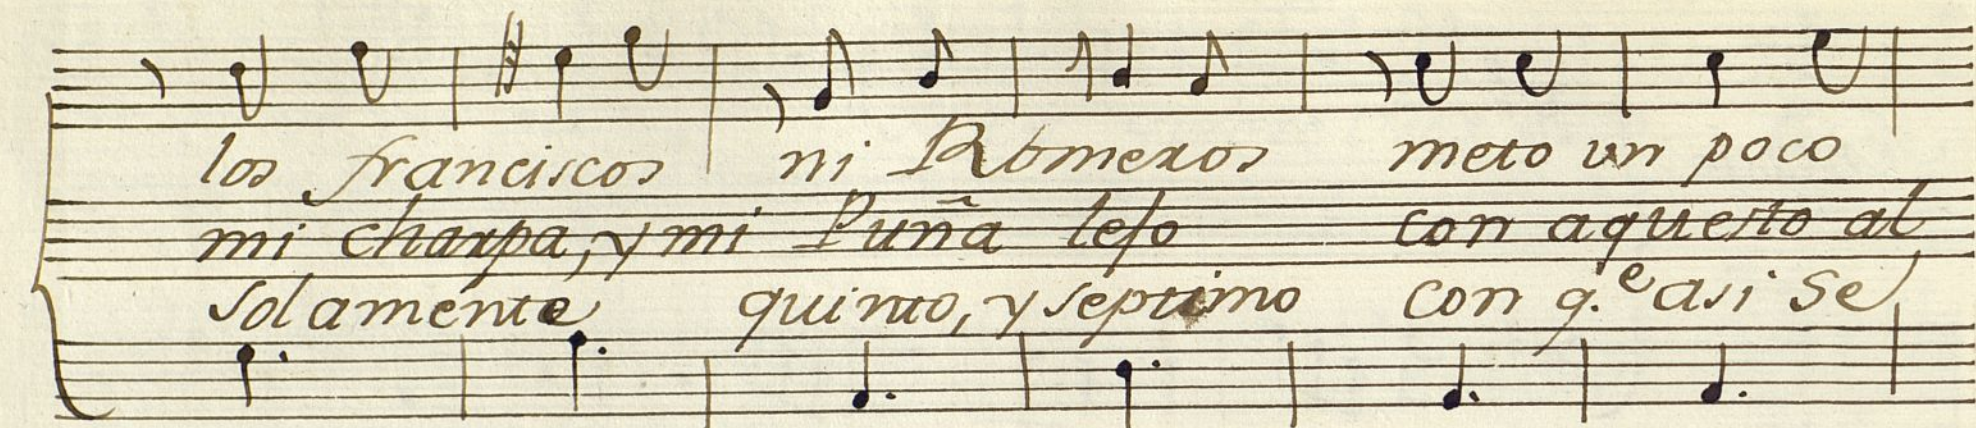 los franciscos ni Romeros meto un poco
mi charpa, y mi Puña leso con aquesto al
solamente quinto, y septimo con q.e asi se